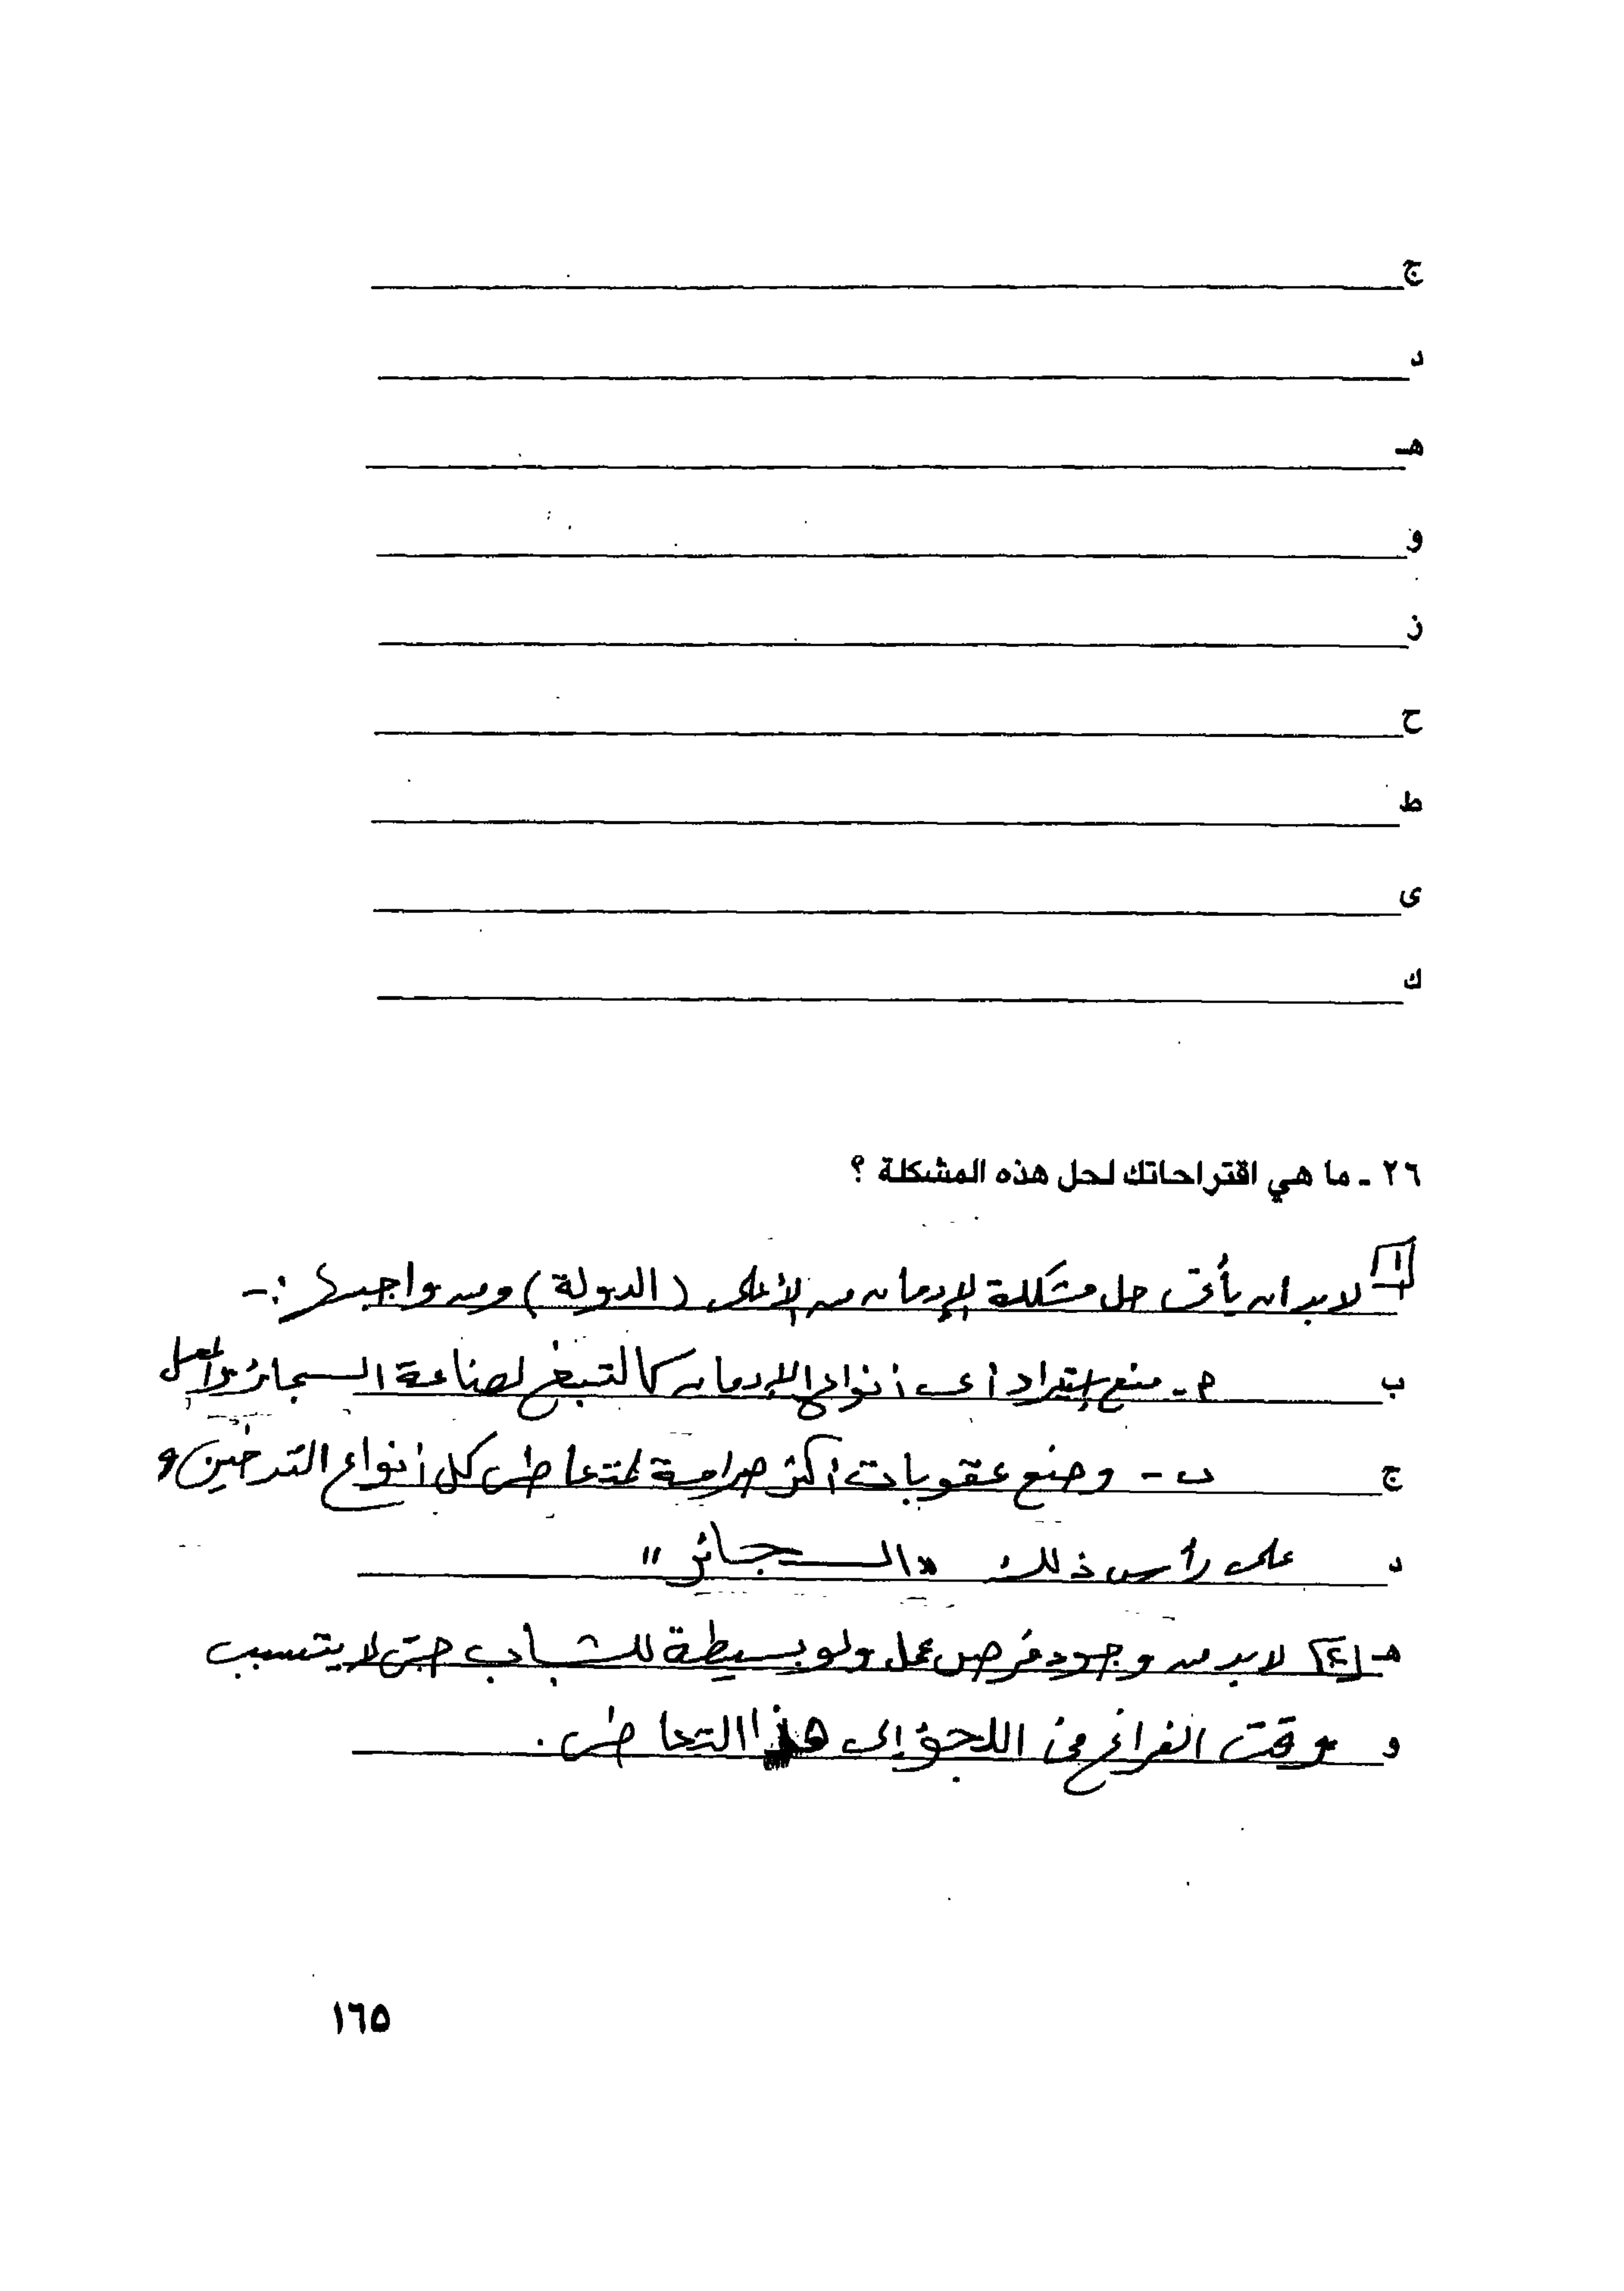 ج
د
هـ
و
ز
ح
ط
ى
ك
٢٦ ـ ما هي اقتراحاتك لحل هذه المشكلة ؟
١ لابد ان يأتى حل مشكلة الإدمان من الأعلى (الدولة) ومن واجبها :-
ب م - منع إستيراد أى أنواع الإدمان كالتبغ لصناعة السجائر
ج ب - وضع عقوبات أكثر صرامة لمتعاطى كل أنواع التدخين و
د على رأس ذلك "السجائر"
هـ ٢ لابد من وجود فرص عمل ولو بسيطة للشباب حتى لا يتسبب
و وقت الفراغ فى اللجؤ إلى هذا التعاطى .
١٦٥